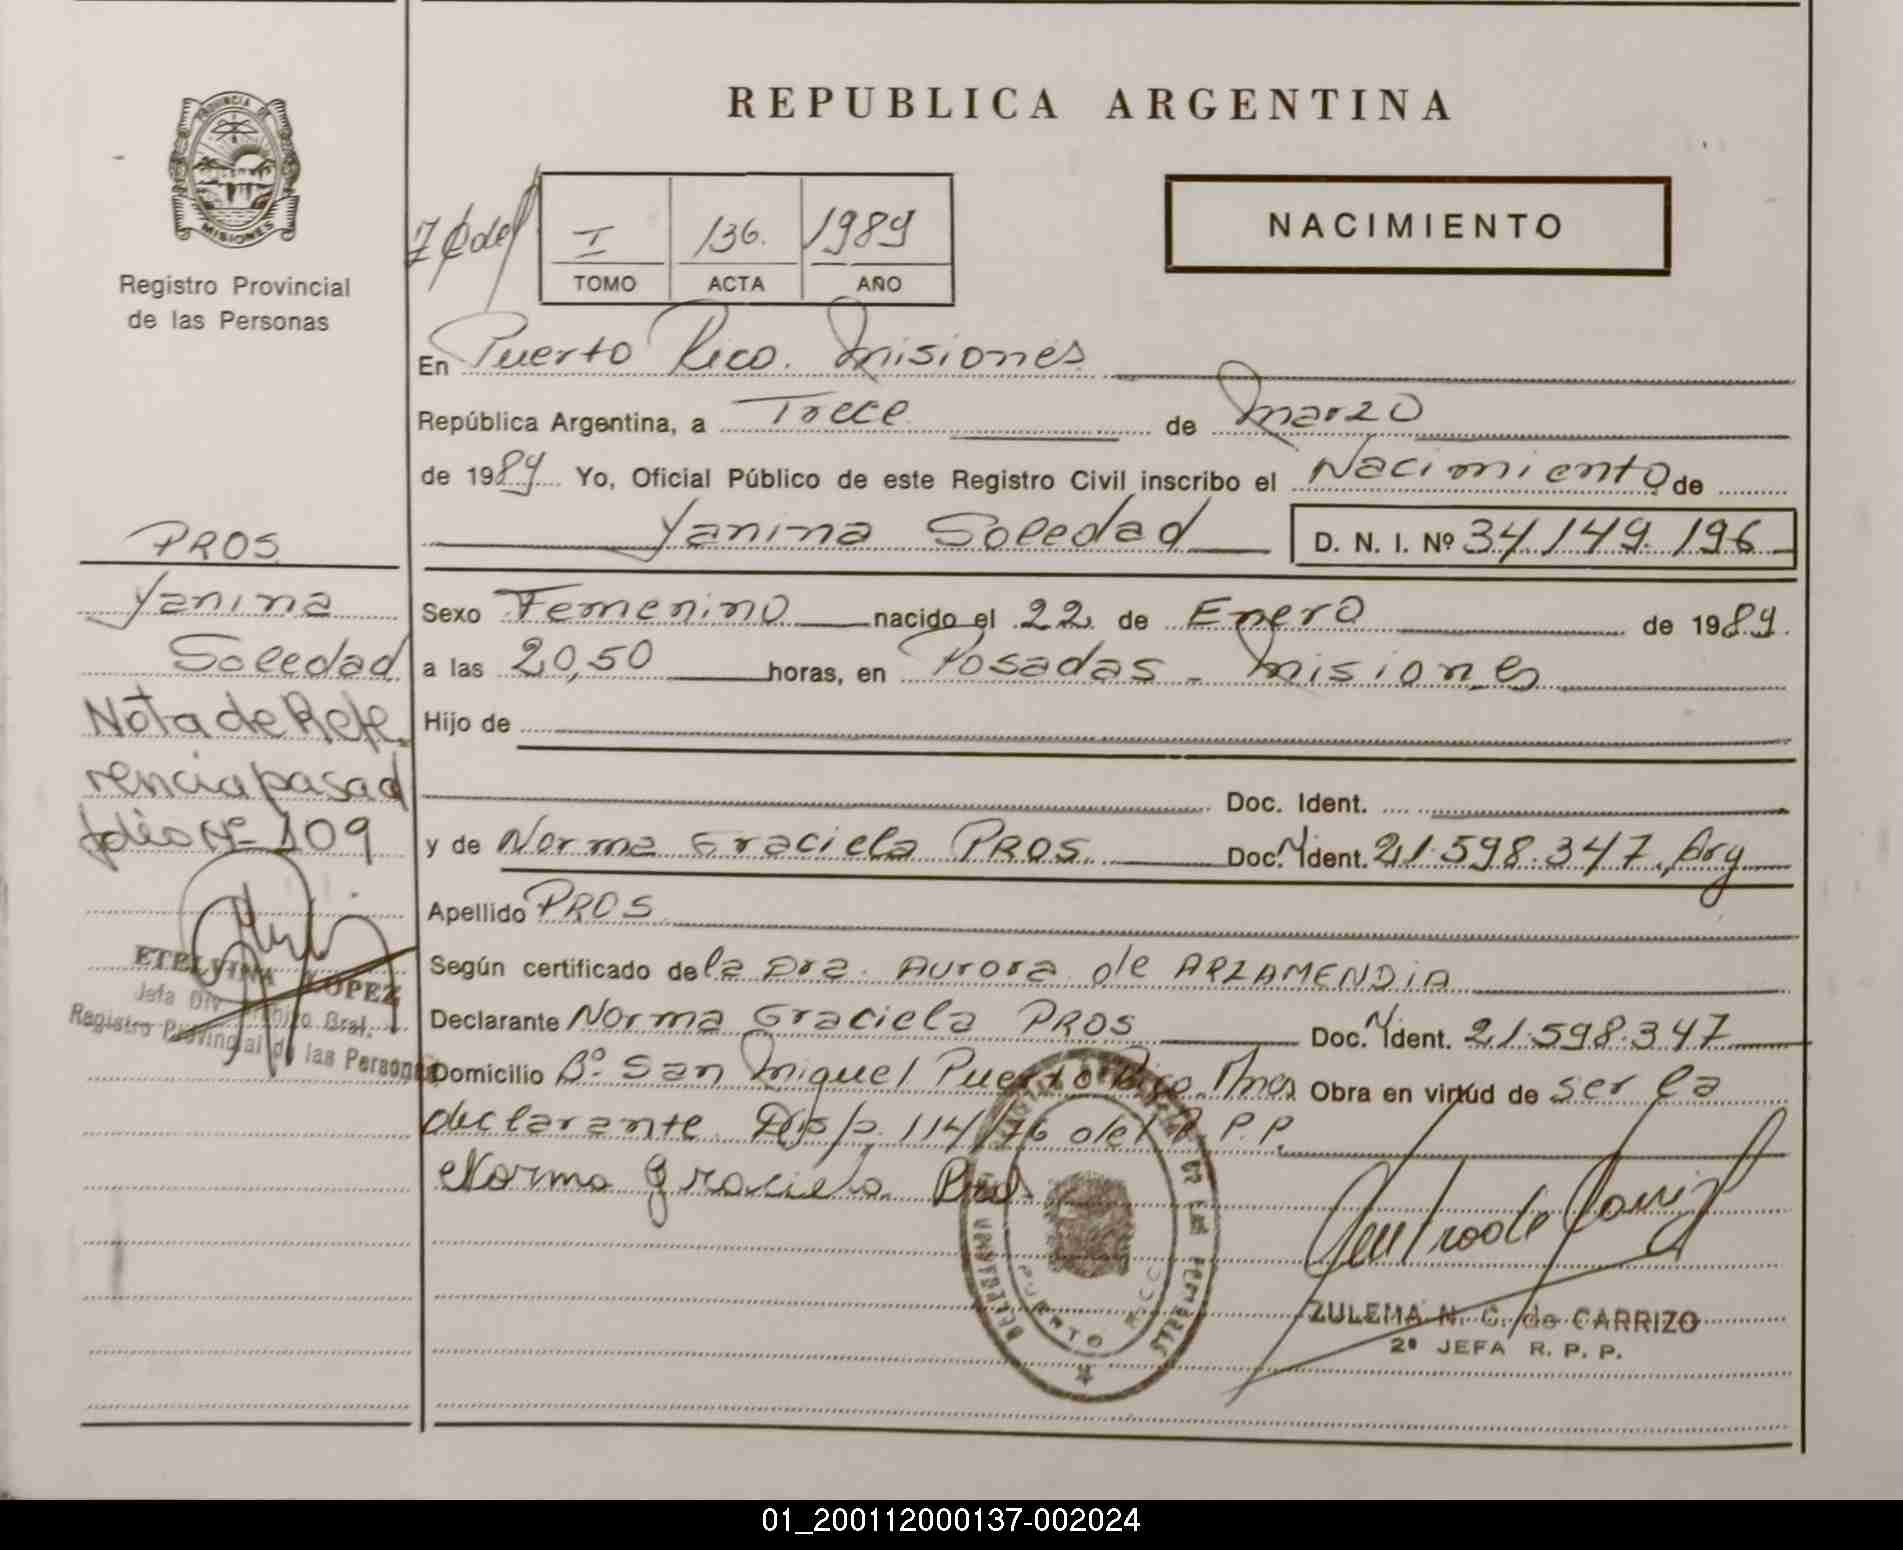 REPUBLICA ARGENTINA
PROVINCIA DE
MISIONES
Registro Provincial
de las Personas
I 136. 1989
TOMO ACTA AÑO
NACIMIENTO
En Puerto Rico. Misiones
República Argentina, a Trece de Marzo
de 1989 Yo, Oficial Público de este Registro Civil inscribo el Nacimiento de
Yanina Soledad D. N. I. Nº 34.149.196
Sexo Femenino nacido el 22 de Enero de 1989.
a las 20,50 horas, en Posadas - Misiones
Hijo de
Doc. Ident.
y de Norma Graciela PROS. Doc. N Ident. 21.598.347. Arg
Apellido PROS
Según certificado de la Dra. Aurora de ARZAMENDIA
Declarante Norma Graciela PROS Doc. N Ident. 21.598.347
Domicilio Bº San Miguel Puerto Rico. Mnes Obra en virtud de ser la
declarante. Disp. 114/76 del R.P.P.
Norma Graciela Pros
PUERTO RICO
ZULEMA N. C. de CARRIZO
2ª JEFA R. P. P.
PROS
Yanina
Soledad
Nota de Refe
rencia pasad
folio Nº 109
ETELVINA LOPEZ
Jefa Div. Archivo Gral.
Registro Provincial de las Personas
01_200112000137-002024